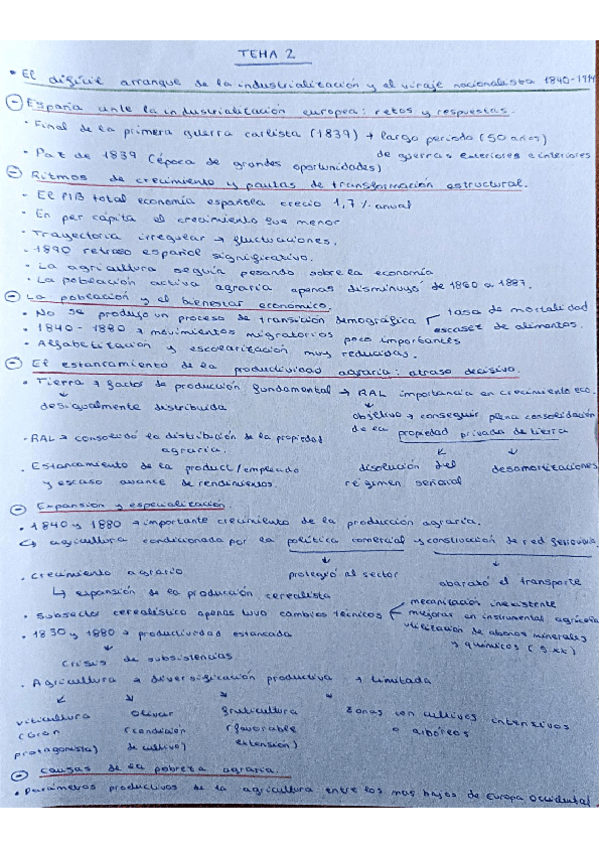 TEMA 2
• El difícil arranque de la industrialización y el viraje nacionalista 1840-1914
- España ante la industrialización europea: retos y respuestas.
• Final de la primera guerra carlista (1839) → largo período (50 años)
de guerras exteriores e interiores
• Paz de 1839 (época de grandes oportunidades)
- Ritmos de crecimiento y pautas de transformación estructural.
- El PIB total economía española creció 1,7 % anual
- En per cápita el crecimiento fue menor
- Trayectoria irregular → fluctuaciones.
- 1890 retraso español significativo.
- La agricultura seguía pesando sobre la economía
- La población activa agraria apenas disminuyó de 1860 a 1887.
- La población y el bienestar económico.
• No se produjo un proceso de transición demográfica tasa de mortalidad
escasez de alimentos.
• 1840-1880 → movimientos migratorios poco importantes
• Alfabetización y escolarización muy reducidas.
- El estancamiento de la productividad agraria: atraso decisivo.
• Tierra → factor de producción fundamental → RAL importancia en crecimiento eco.
desigualmente distribuida
objetivo → conseguir plena consolidación
de la propiedad privada de tierra
- RAL → consolidó la distribución de la propiedad
agraria.
disolución del
régimen señorial
desamortizaciones
. Estancamiento de la product/empleado
y escaso avance de rendimientos.
- Expansión y especialización.
• 1840 y 1880 → importante crecimiento de la producción agraria.
↳ agricultura condicionada por la política comercial y construcción de red ferroviaria.
protegió al sector
abarató el transporte
. Crecimiento agrario
↳ expansión de la producción cerealista
• Subsector cerealístico apenas tuvo cambios técnicos
mecanización inexistente
mejoras en instrumental agrícola
utilización de abonos minerales
y químicos (S.XX)
• 1830 y 1880 → productividad estancada
crisis de subsistencias
. Agricultura → diversificación productiva → limitada
viticultura
(gran
protagonista)
olivar
(condición
de cultivo)
fruticultura
(favorable
extensión)
zonas con cultivos intensivos
o arbóreos
- Causas de la pobreza agraria.
• Parámetros productivos de la agricultura entre los más bajos de Europa Occidental